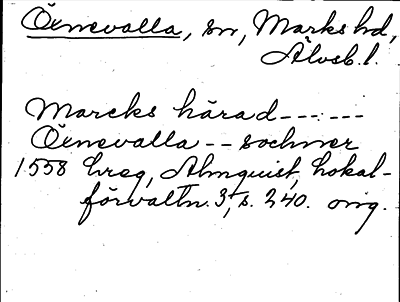 Öxnevalla, sn, Marks hd,
Älvsb. l.
Marcks härad------
Öxnevalla -- sochner
1558 hreg, Almquist, Lokal-
förvaltn. 3, s. 240. orig.